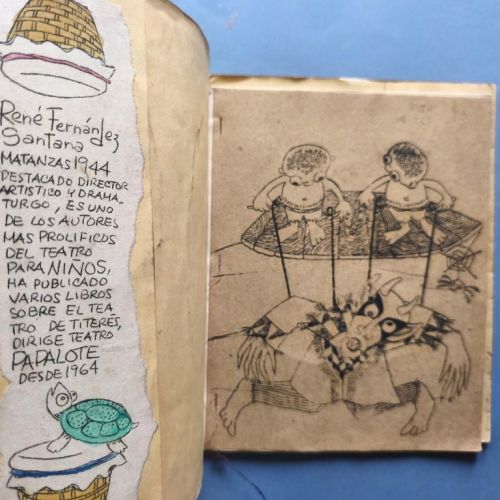 René Fernández
Santana
MATANZAS 1944
DESTACADO DIRECTOR
ARTISTICO Y DRAMA-
TURGO, ES UNO
DE LOS AUTORES
MAS PROLIFICOS
DEL TEATRO
PARA NIÑOS,
HA PUBLICADO
VARIOS LIBROS
SOBRE EL TEA
TRO DE TITERES,
DIRIGE TEATRO
PAPALOTE
DESDE 1964